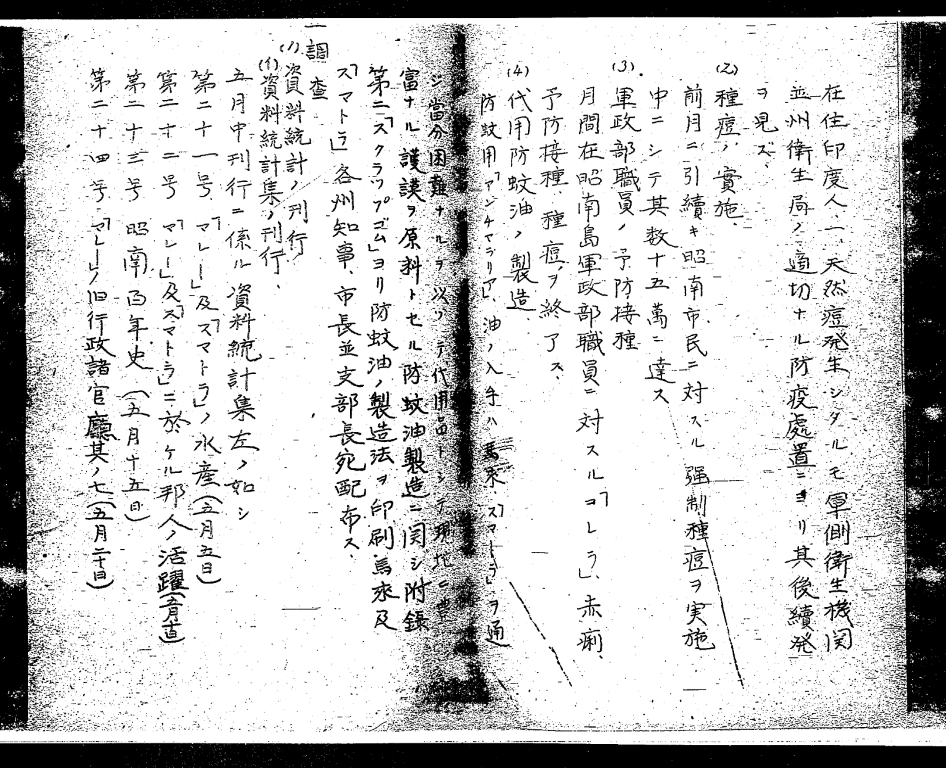 在住印度人ニ、天然痘発生シタルモ軍側衛生機関
並州衛生局ノ適切ナル防疫處置ニヨリ其後続発
ヲ見ズ、
(2)
種痘ノ實施、
前月ニ引続キ昭南市民ニ対スル強制種痘ヲ実施
中ニシテ其数十五萬ニ達ス
(3)
軍政部職員ノ予防接種
月間在昭南島軍政部職員ニ対スル「コレラ」、赤痢、
予防接種、種痘ヲ終了ス、
(4)
代用防蚊油ノ製造
防蚊用「アンチマラリア」油ノ入手ハ馬来、「スマトラ」ヲ通
ジ當分困難ナルヲ以ッテ代用品トシテ現地ニ豊
富ナル護謨ヲ原料トセル防蚊油製造ニ関シ附録
第二「スクラップゴム」ヨリ防蚊油ノ製造法ヲ印刷、馬来及
「スマトラ」各州知事、市長並支部長宛配布ス、
一
調査
(1)資料統計ノ刊行
(イ)資料統計集ノ刊行、
五月中刊行ニ係ル資料統計集左ノ如シ
第二十一号「マレー」及「スマトラ」ノ水産(五月五日)
第二十二号「マレー」及「スマトラ」ニ於ケル邦人ノ活躍(五月
第二十三号 昭南百年史(五月十五日)
第二十四号「マレー」ノ旧行政諸官廳其ノ七(五月二十日)